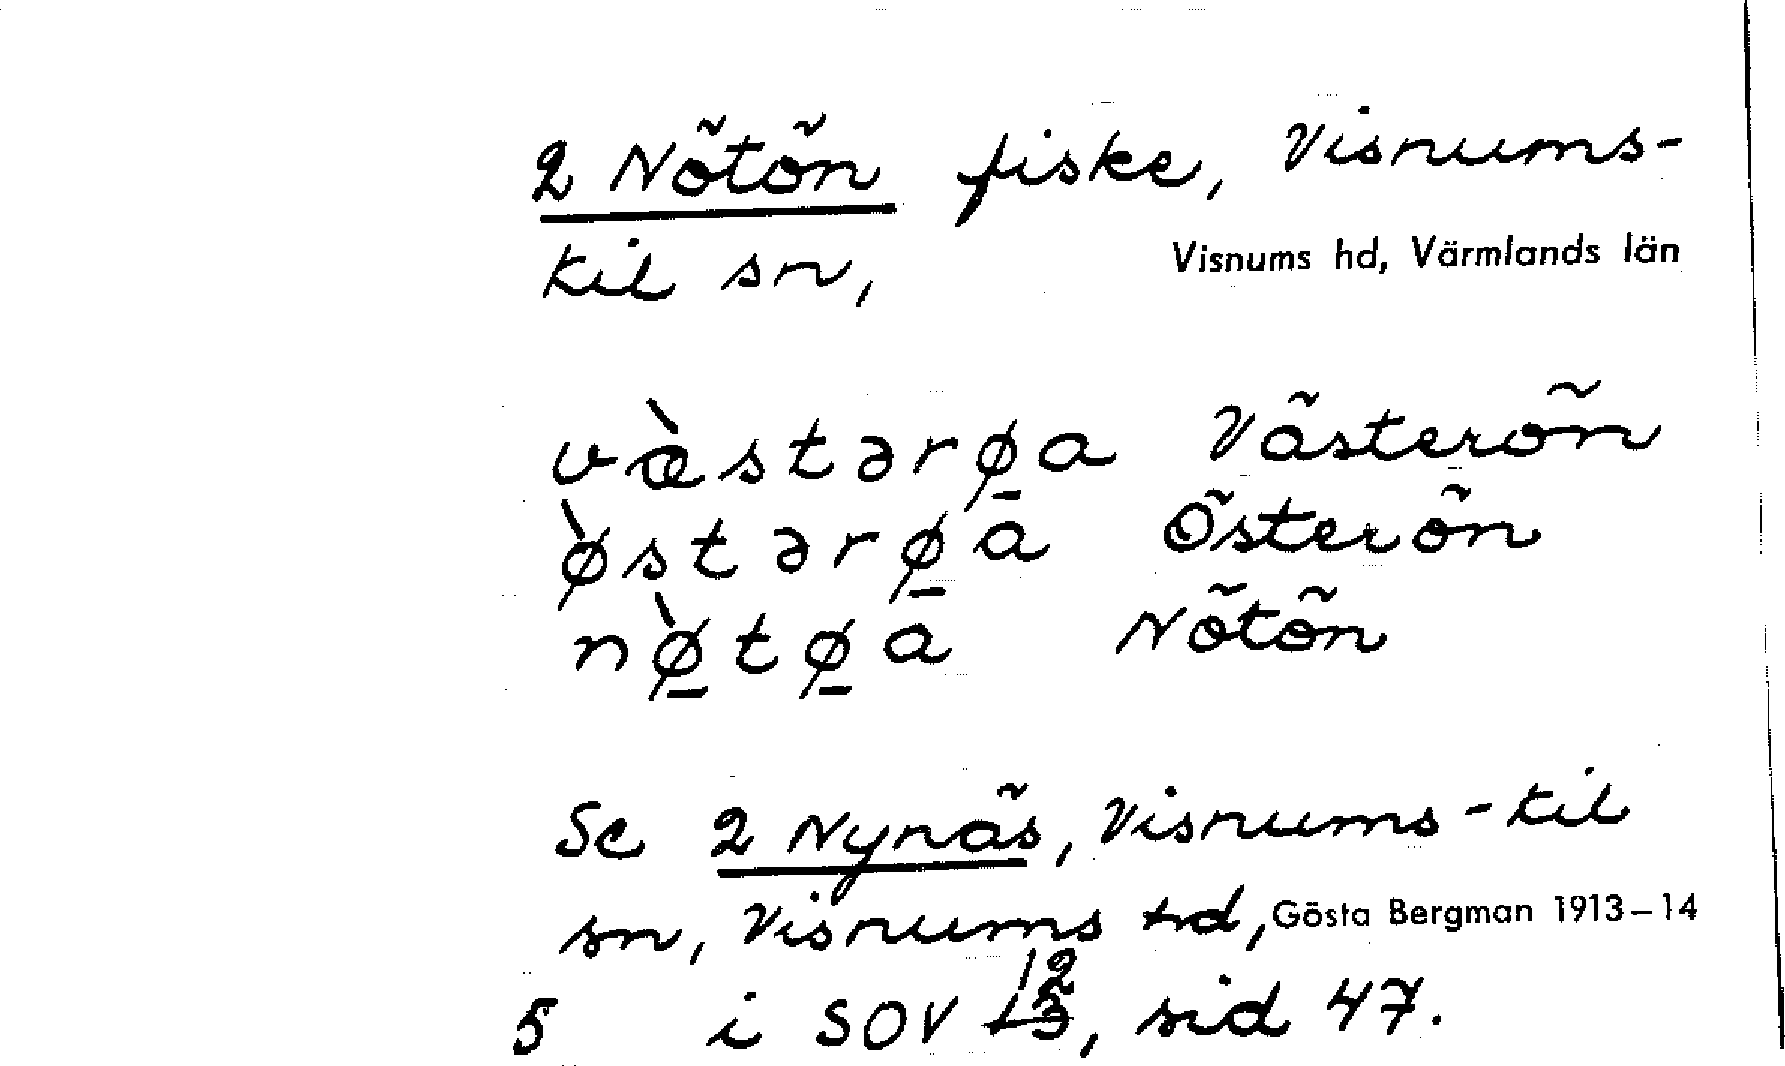 2 Nötön fiske, Visnums-
Kil sn, Visnums hd, Värmlands län
væ̀stərø̱a Västerön
ø̀stərø̱a Österön
nø̱̀tø̱a Nötön
Se 2 Nynäs, Visnums-Kil
sn, Visnums hd, Gösta Bergman 1913–14
5 i SOV 12, sid 47.